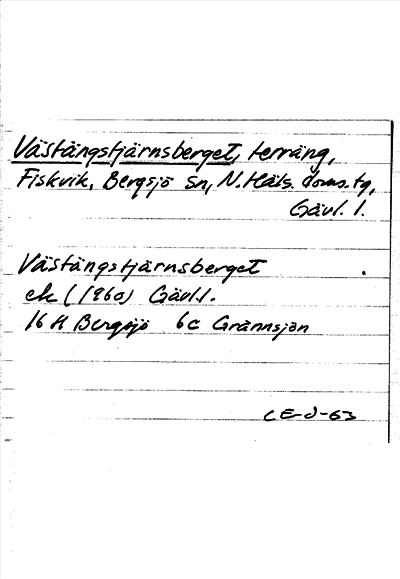 Västängstjärnsberget, terräng,
Fiskvik, Bergsjö sn, N. Häls. doms.tg,
Gävl. l.
Västängstjärnsberget
ek (1960) Gävl.l.
16 H Bergsjö 6c Grännsjön
CE-J-63